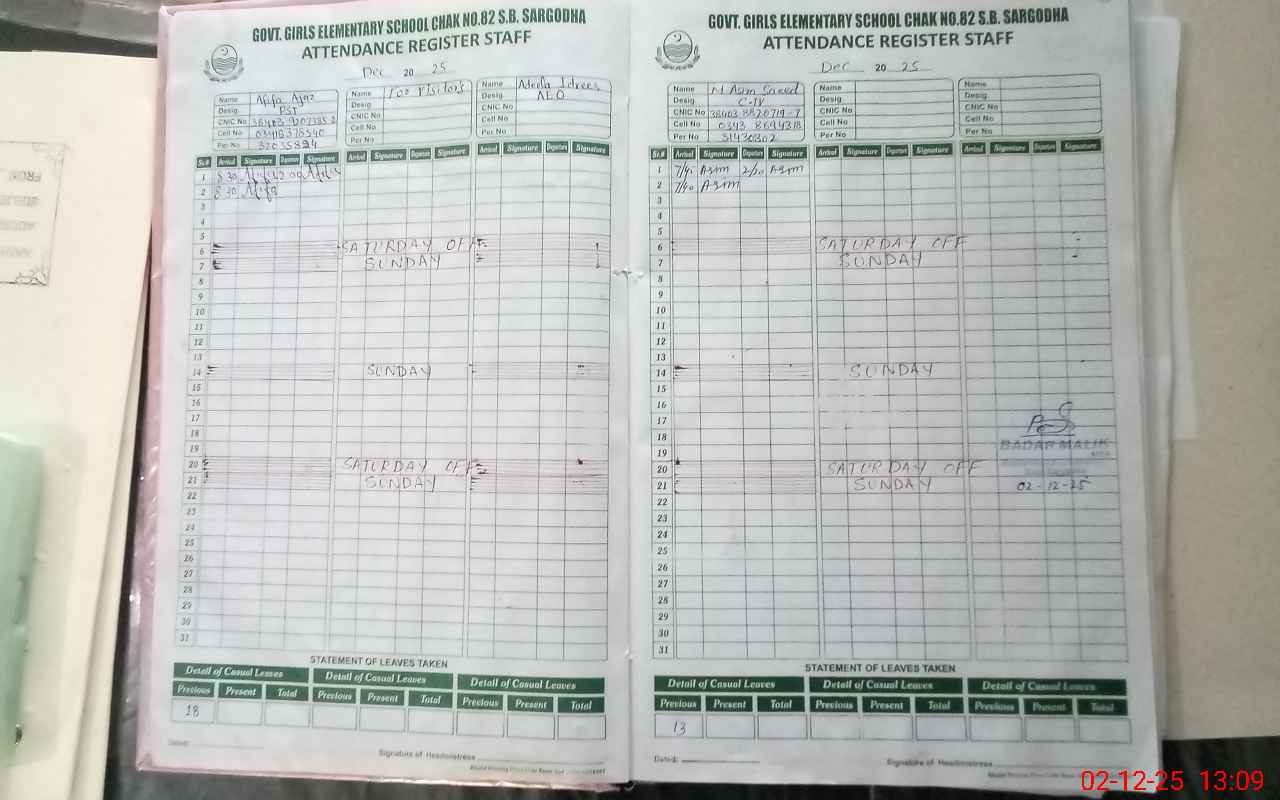 GOVT. GIRLS ELEMENTARY SCHOOL CHAK NO.82 S.B. SARGODHA
ATTENDANCE REGISTER STAFF
Dec 20 25
Name Afifa Ajaz
Desig. PST
CNIC No
Cell No
Per No
Name Too Visitors
Desig.
CNIC No
Cell No
Per No
Name Idrees
Desig. AEO
CNIC No
Cell No
Per No
Sr.# Arrival Signature Departure Signature Arrival Signature Departure Signature Arrival Signature Departure Signature
1 8 30 Afifa Afifa
2 8 30 Afifa
3
4
5
6 SATURDAY OFF
7 SUNDAY
8
9
10
11
12
13
14 SUNDAY
15
16
17
18
19
20 SATURDAY OFF
21 SUNDAY
22
23
24
25
26
27
28
29
30
31
STATEMENT OF LEAVES TAKEN
Detail of Casual Leaves Detail of Casual Leaves Detail of Casual Leaves
Previous Present Total Previous Present Total Previous Present Total
18
Dated:
Signature of Headmistress
GOVT. GIRLS ELEMENTARY SCHOOL CHAK NO.82 S.B. SARGODHA
ATTENDANCE REGISTER STAFF
Dec 20 25
Name M Asim Saeed
Desig. C-IV
CNIC No 38403 8820719-7
Cell No 0343 8694318
Per No 31430302
Name
Desig.
CNIC No
Cell No
Per No
Name
Desig.
CNIC No
Cell No
Per No
Sr.# Arrival Signature Departure Signature Arrival Signature Departure Signature Arrival Signature Departure Signature
1 7/40 Asim Asim
2 7/40 Asim
3
4
5
6 SATURDAY OFF
7 SUNDAY
8
9
10
11
12
13
14 SUNDAY
15
16
17
18
19
BADAR MALIK
20 SATURDAY OFF
21 SUNDAY
02-12-25
22
23
24
25
26
27
28
29
30
31
STATEMENT OF LEAVES TAKEN
Detail of Casual Leaves Detail of Casual Leaves Detail of Casual Leaves
Previous Present Total Previous Present Total Previous Present Total
13
Dated:
Signature of Headmistress
02-12-25 13:09